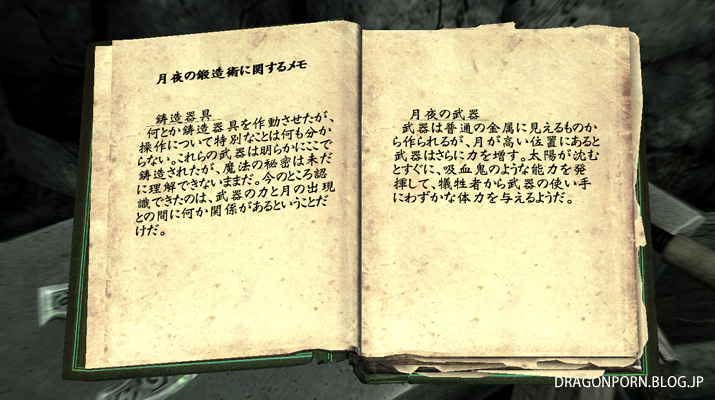 月夜の鍛造術に関するメモ
鋳造器具
何とか鋳造器具を作動させたが、
操作について特別なことは何も分か
らない。これらの武器は明らかにここで
鋳造されたが、魔法の秘密は未だ
に理解できないままだ。今のところ認
識できたのは、武器の力と月の出現
との間に何か関係があるということだ
けだ。
月夜の武器
武器は普通の金属に見えるものか
ら作られるが、月が高い位置にあると
武器はさらに力を増す。太陽が沈む
とすぐに、吸血鬼のような能力を発
揮して、犠牲者から武器の使い手
にわずかな体力を与えるようだ。
DRAGONPORN.BLOG.JP